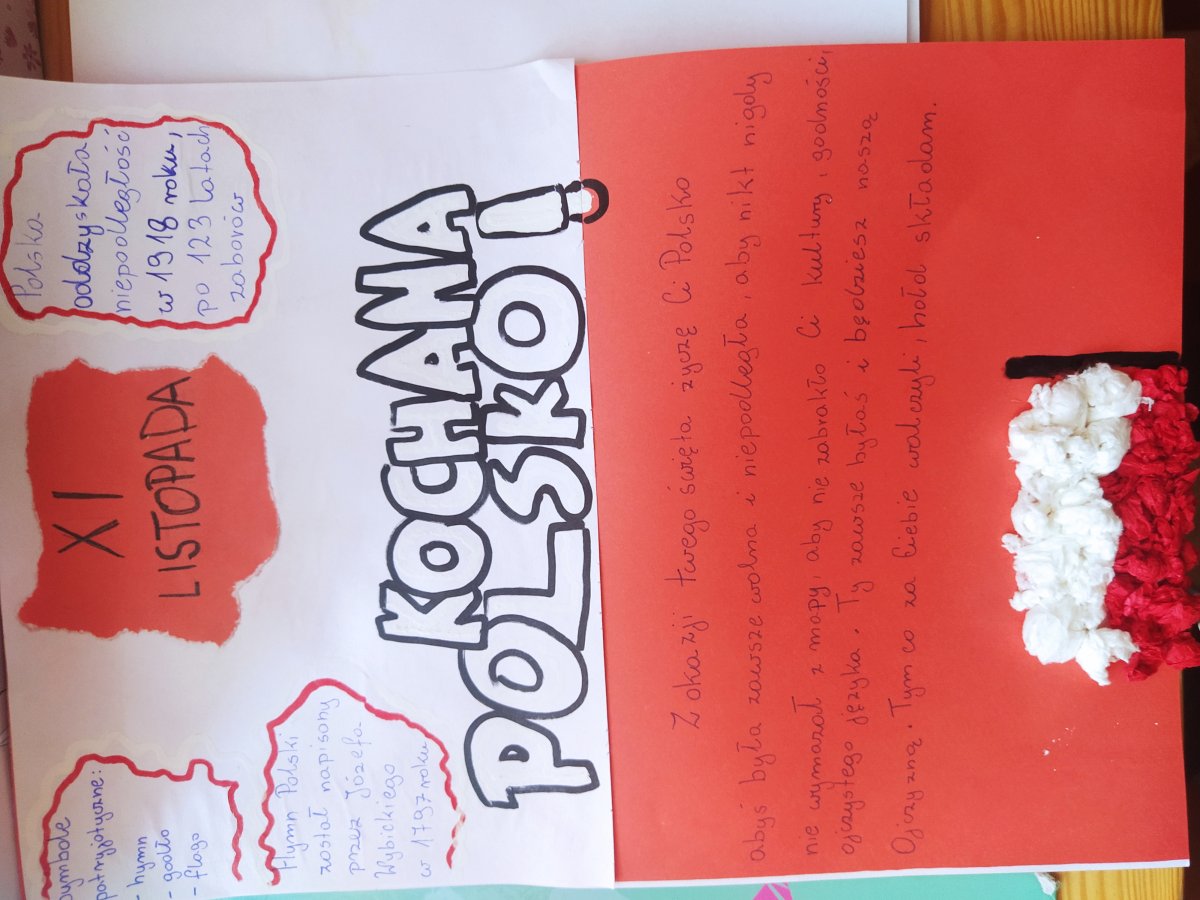 Symbole
patryjotyczne:
- hymn
- godło
- flaga
XI
LISTOPADA
Polska
oddzyskała
niepodległość
w 1918 roku,
po 123 latach
zaborów
Hymn Polski
został napisony
przez Józefa
Wybickiego
w 1797 roku
KOCHANA
POLSKO!
Z okazji twego święta życzę Ci Polsko
abyś była zawsze wolna i niepodległa, aby nikt nigdy
nie wymazał z mapy, aby nie zabrakło Ci kultury, godności,
ojczystego języka. Ty zawsze byłaś i będziesz naszą
Ojczyzną. Tym co za Ciebie walczyli, hołd składam.